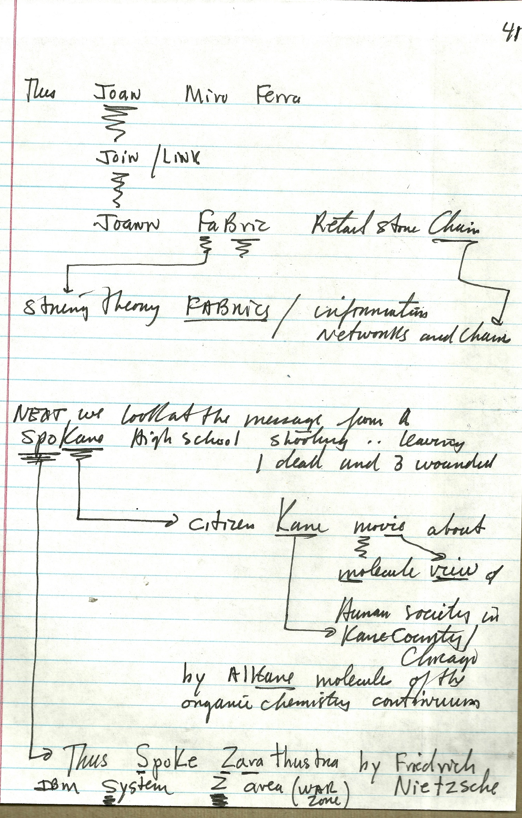 41
Thus Joan Miro Ferra
Join / Link
Joann FaBric Retail store Chain
String Theory FABrics / information
Networks and Chain
NEXT we look at the message from a
SpoKane High school shooting .. leaving
1 dead and 3 wounded
citizen Kane movie about
molecule view of
Human society in
Kane County /
Chicago
by AlKane molecule of the
organic chemistry continuum
Thus Spoke Zarathustra by Friedrich
IBm System Z area (WAR Nietzsche
Zone)